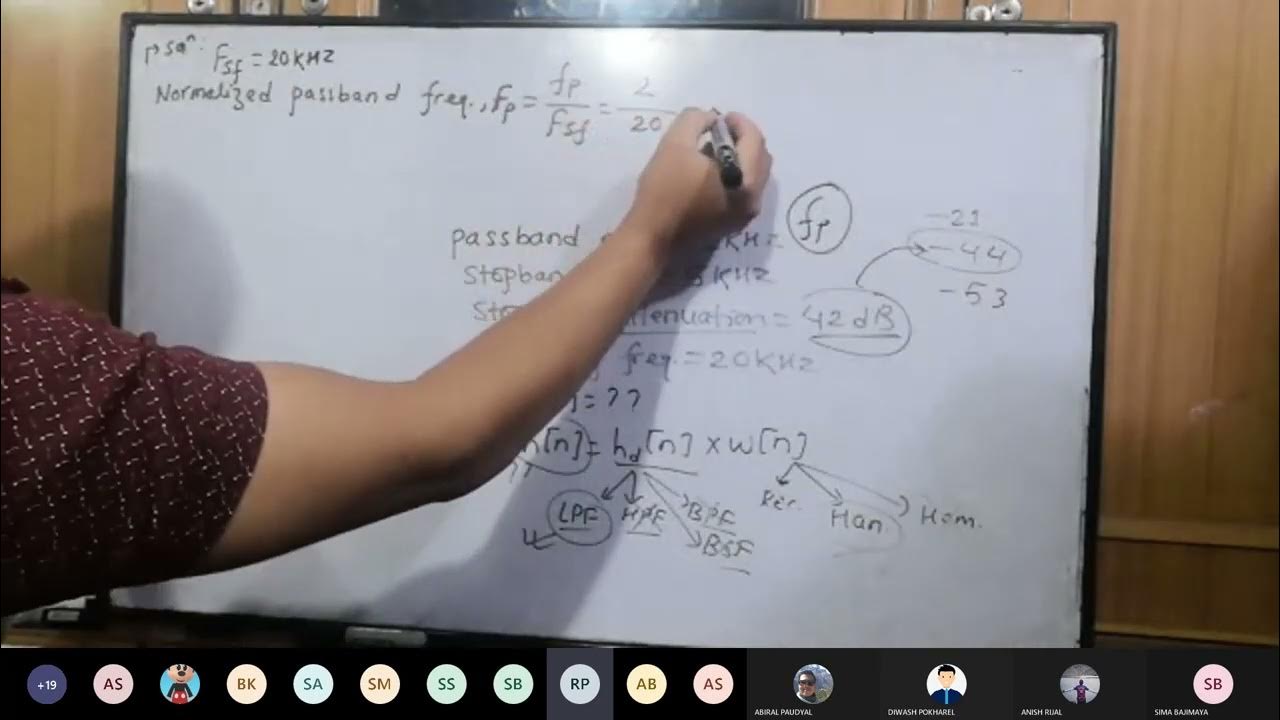 Solⁿ: Fsf = 20KHZ
Normalized passband freq., fp = fp/Fsf = 2/20
passband KHZ = fp
-21
-44
-53
Stopban KHZ
attenuation = 42 dB
freq. = 20KHZ
= ??
h[n] = hd[n] × w[n]
??
LPF HPF BPF BSF
Rec. Han Ham.
+19 AS BK SA SM SS SB RP AB AS SB
ABIRAL PAUDYAL DIWASH POKHAREL ANISH RIJAL SIMA BAJIMAYA